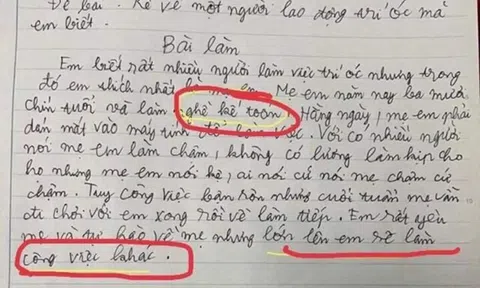 Đề bài. Kể về một người lao động trí óc mà
em biết.
Bài làm
Em biết rất nhiều người làm việc trí óc nhưng trong
đó em thích nhất là mẹ em. Mẹ em năm nay ba mươi
chín tuổi và làm nghề kế toán. Hằng ngày, mẹ em phải
dán mắt vào máy tính để làm việc. Với có nhiều người
nói mẹ em làm chậm, không có lương làm kịp cho
họ nhưng mẹ em mới kệ, ai nói cứ nói mẹ chậm cứ
chậm. Tuy công việc bận rộn nhưng cuối tuần mẹ vẫn
đi chơi với em xong rồi về làm tiếp. Em rất yêu
mẹ và tự hào về mẹ nhưng lớn lên em sẽ làm
công việc khác.